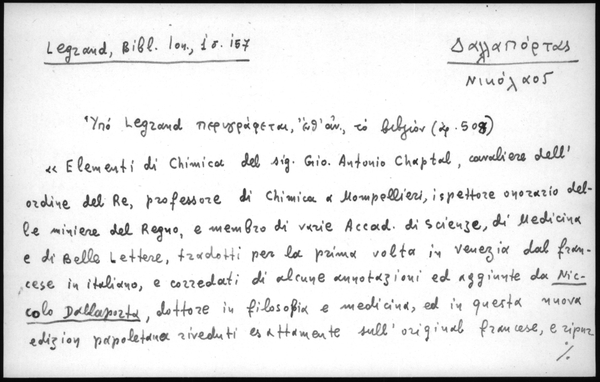 Legrand, Bibl. Ion., 1 σ. 157
Δαλλαπόρτας
Νικόλαος
Ὑπό Legrand περιγράφεται, ἐνθ' ἀν., τό βιβλίον (ἀρ. 508)
« Elementi di Chimica del sig. Gio. Antonio Chaptal, cavaliere dell'
ordine del Re, professore di Chimica a Mompollieri, ispettore onorario del-
le miniere del Regno, e membro di varie Accad. di Scienze, di Medicina
e di Belle Lettere, tradotti per la prima volta in Venezia dal fran-
cese in italiano, e corredati di alcune annotazioni ed aggiunte da Nic-
colo Dallaporta, dottore in filosofia e medicina, ed in questa nuova
edizion napoletana riveduti esattamente sull' original francese, e ripur
%